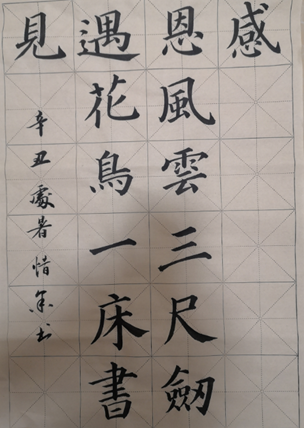 感恩遇見
風雲三尺劒
花鳥一床書
辛丑處暑惜书